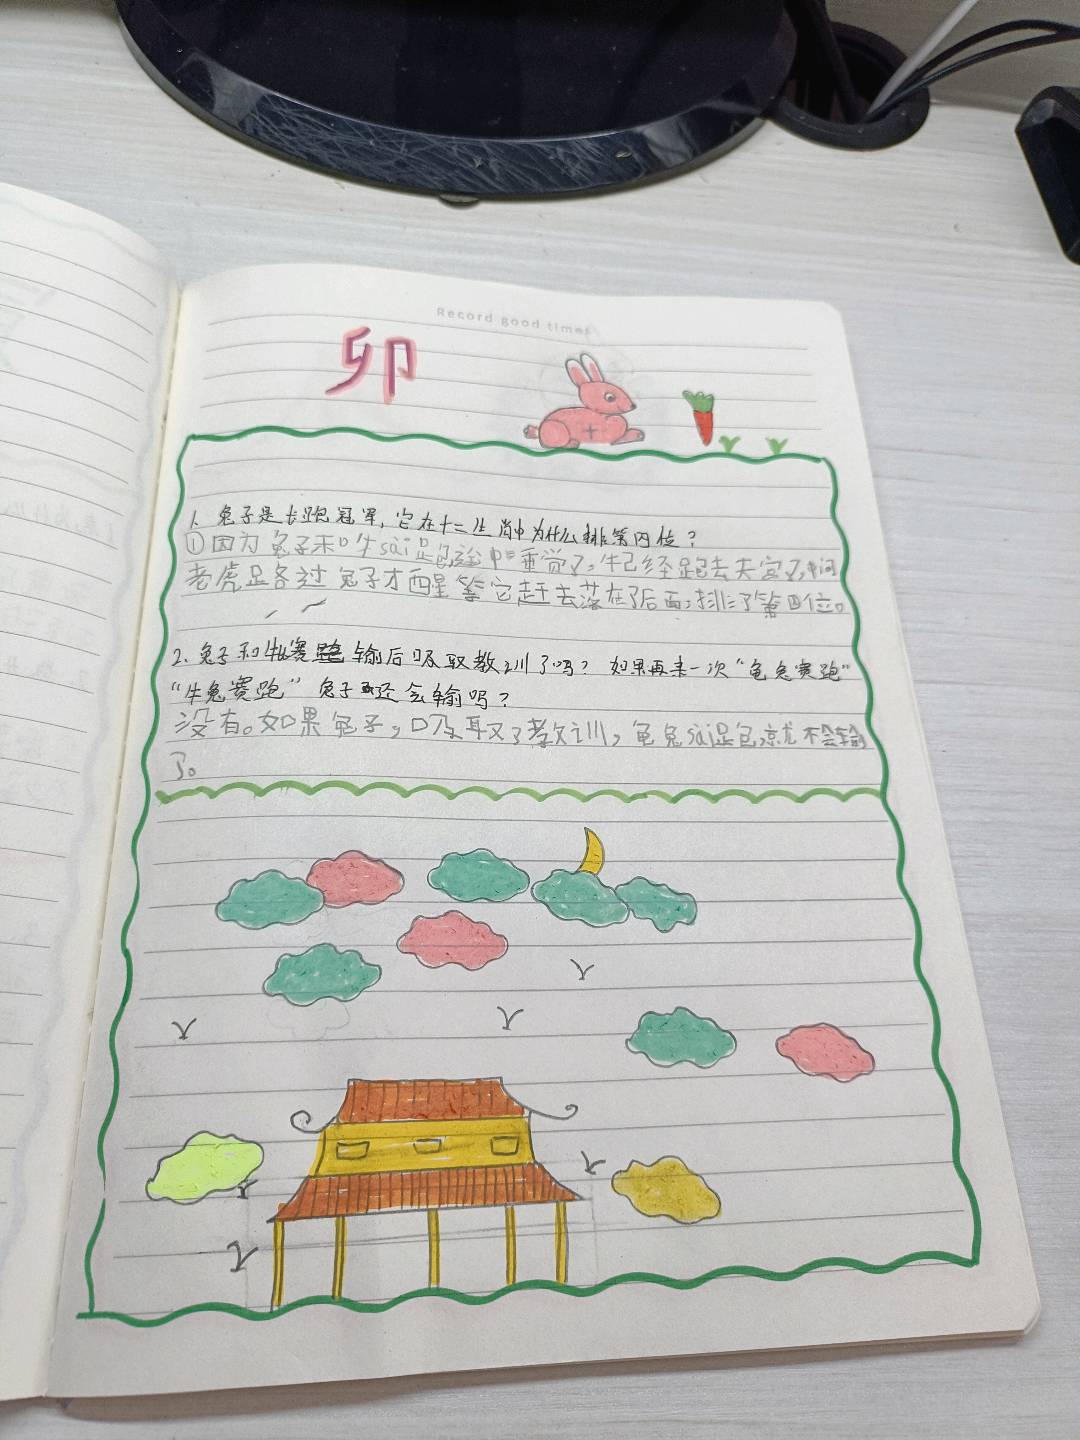 Record good times
卯
1、兔子是长跑冠军，它在十二生肖中为什么排第四位？
①因为兔子和牛sài跑途中睡觉了，牛已经跑去天宫了，中间
老虎路过兔子才醒等它赶去落在了后面，排了第四位。
2、兔子和牛赛跑输后吸取教训了吗？如果再来一次“龟兔赛跑”
“牛兔赛跑”兔子还会输吗？
没有。如果兔子，吸取了教训，龟兔sài跑就不会输
了。